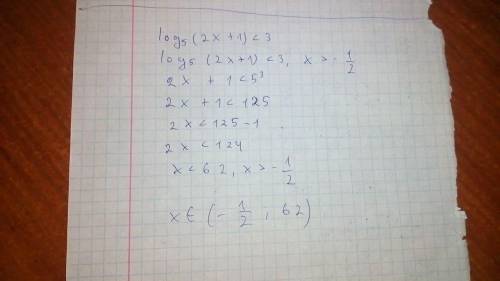 log₅(2x+1)<3
log₅(2x+1)<3, x>-1/2
2x+1<5³
2x+1<125
2x<125-1
2x<124
x<62, x>-1/2
x∈(-1/2, 62)